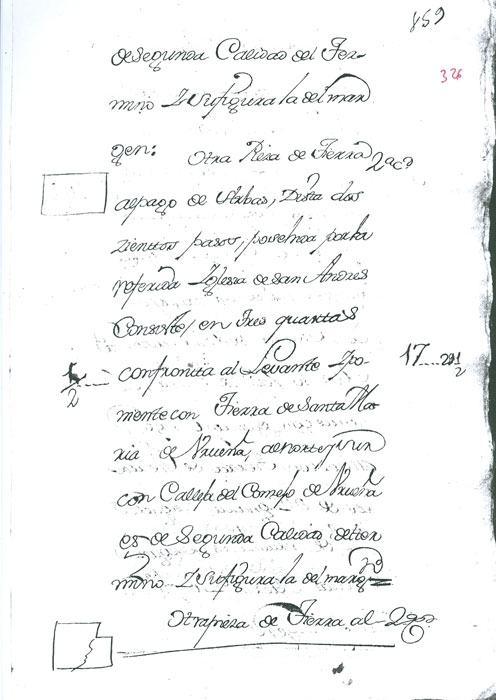 859
326
de segunda Calidad del Ter-
mino Y su figura la del mar
gen:
Otra Pieza de Tierra
al pago de Dista dos
zientos pasos, posehida por la
referida Iglesia de san Andres
Consiste, en tres quartas
confronta al Levante Ypo-
17
2
niente con Tierra de Santa Ma
ria de Urueña, al norte y sur
con Calleja del Consejo de Urueña
es de Segunda Calidad del ter
mino Y su figura la del marg
Otra pieza de Tierra al